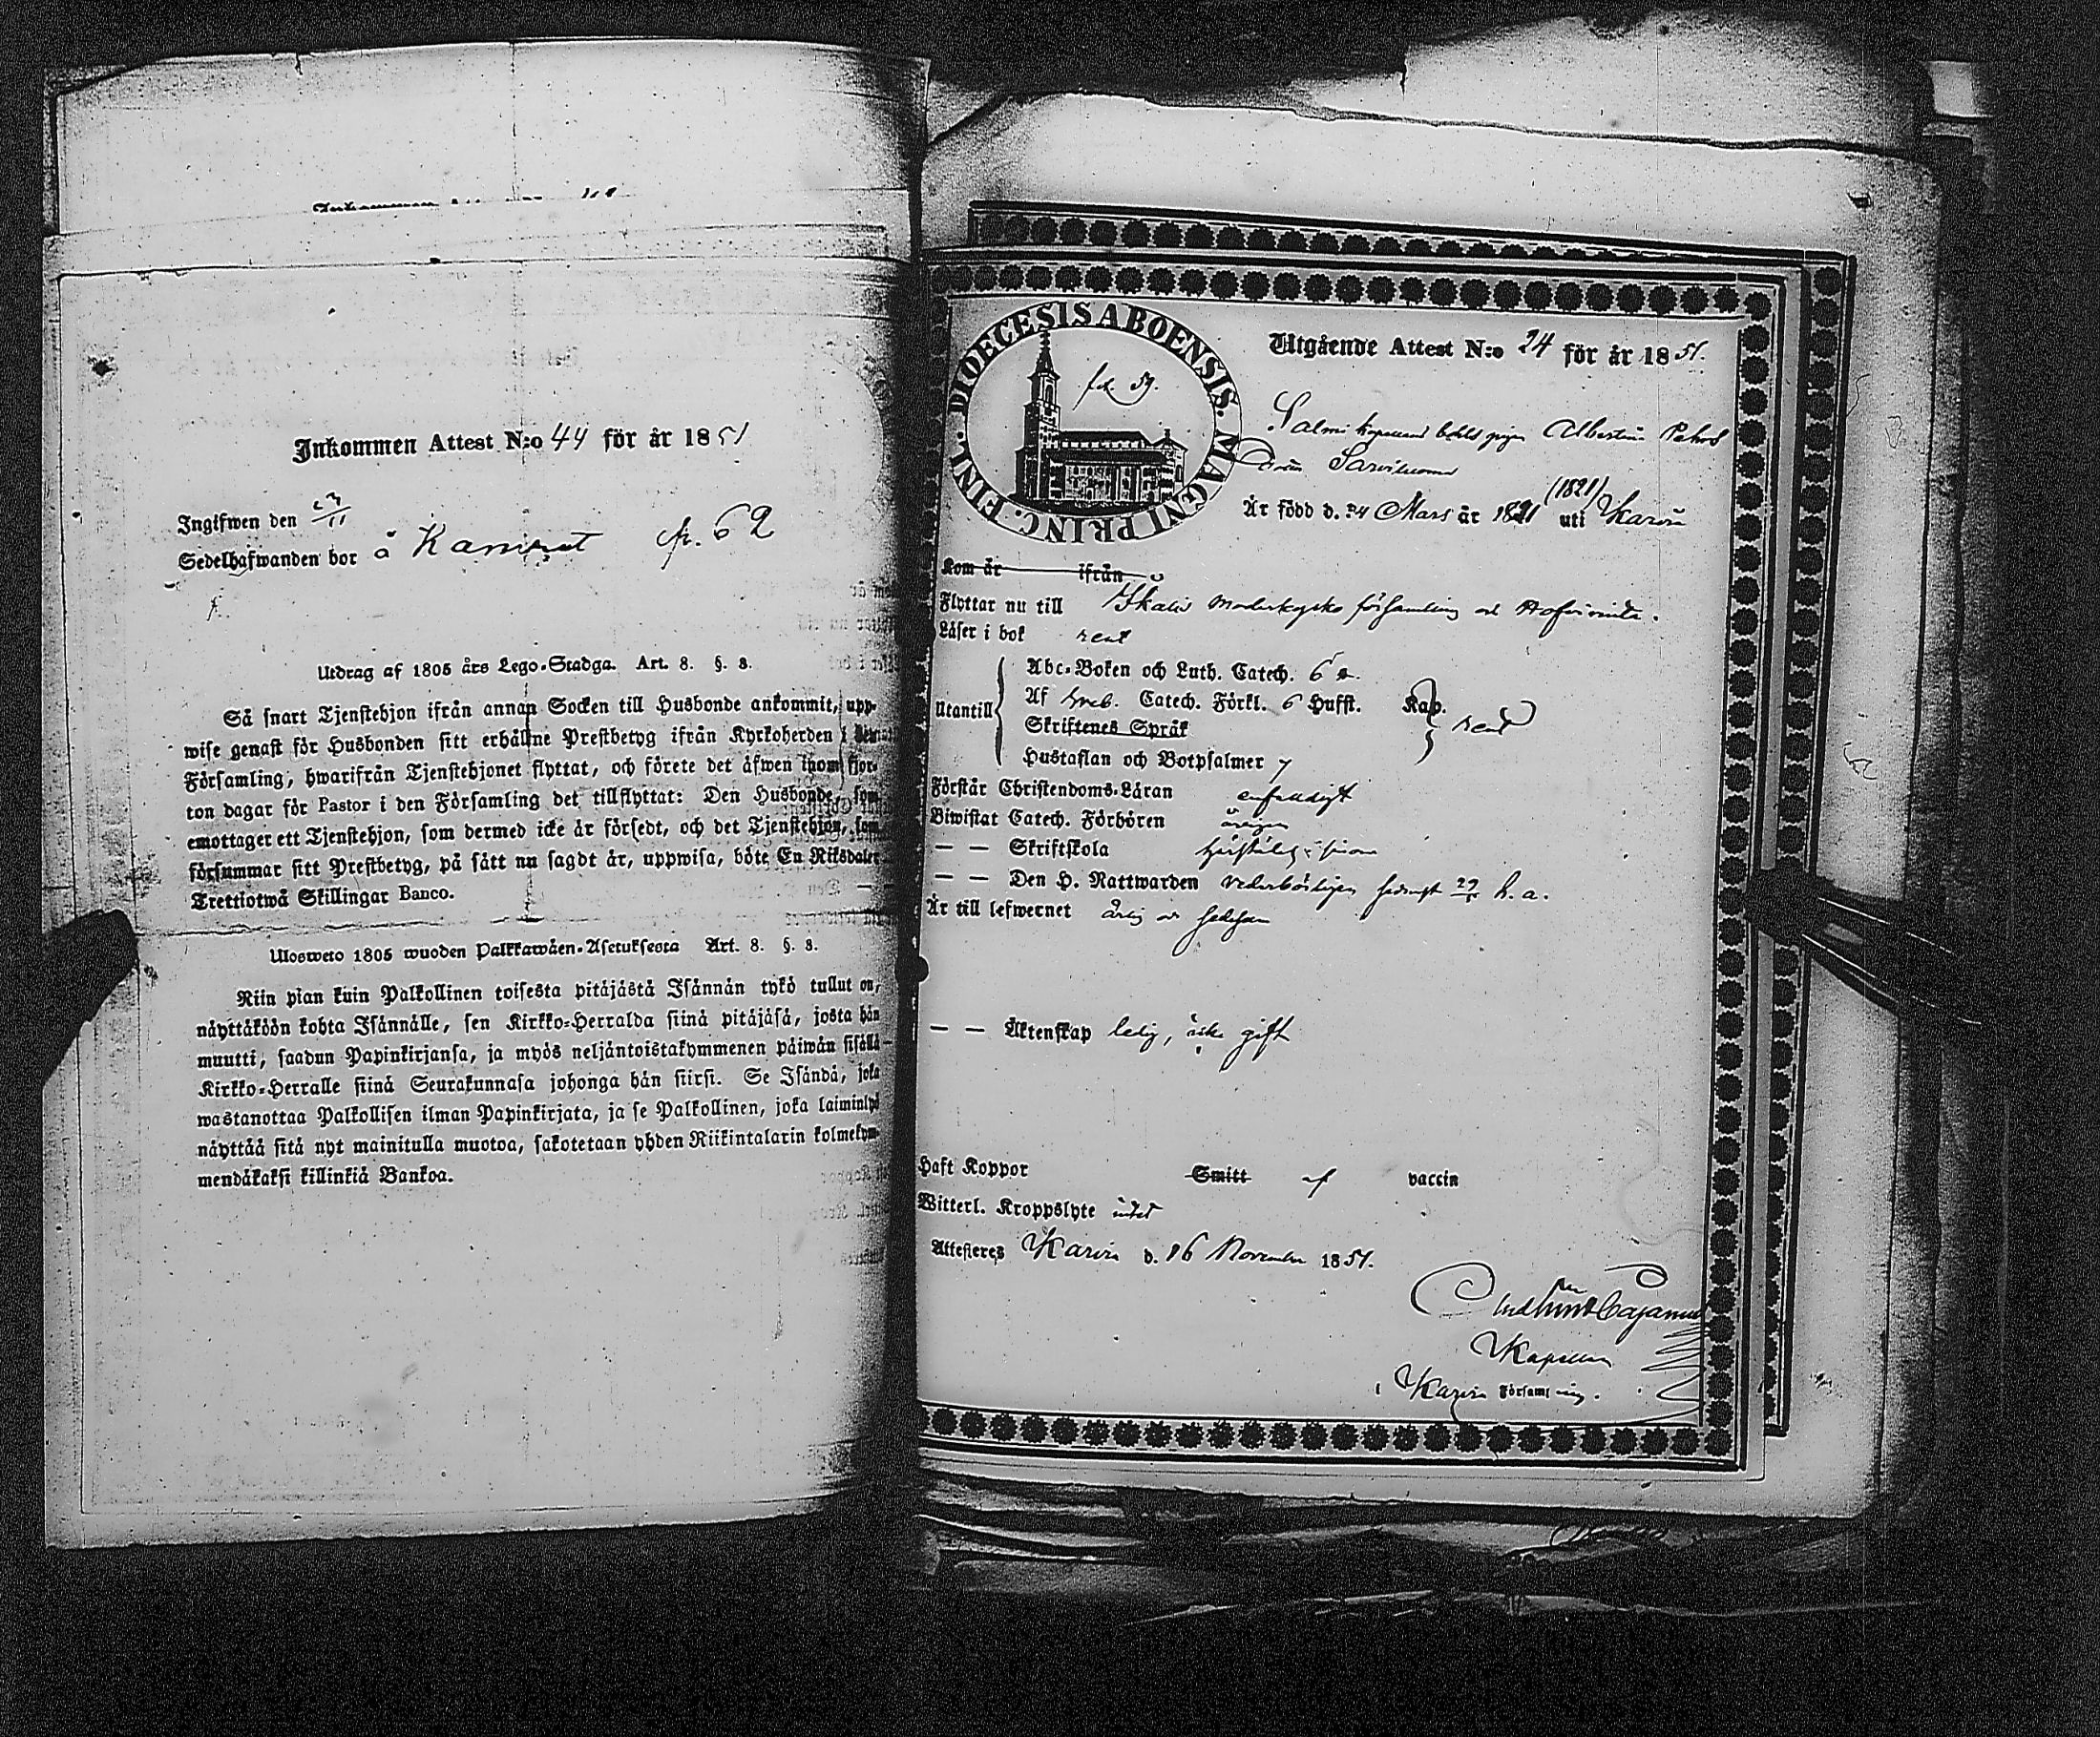 Inkommen Attest N:o 44 för år 1851
Ingifwen den 23/11
Sedelhafwanden bor å fr. 62
Utdrag af 1805 års Lego-Stadga. Art. 8. §. 8.
Så snart Tjenstehjon ifrån annan Socken till Husbonde ankommit, upp-
wise genast för Husbonden sitt erhållne Prestbetyg ifrån Kyrkoherden i
Församling, hwarifrån Tjenstehjonet flyttat, och förete det äfwen inom fjor-
ton dagar för Pastor i den Församling det tillflyttat: Den Husbonde, som
emottager ett Tjenstehjon, som dermed icke är försedt, och det Tjenstehjon, som
försummar sitt Prestbetyg, på sått nu sagdt är, uppwisa, böte En Riksdaler
Trettiotwå Skillingar Banco.
Ulosweto 1805 wuoden Palkkawåen-Asetuksesta Art. 8. §. 8.
Niin pian kuin Palkollinen toisesta pitåjåstå Isånnån tykö tullut on,
nåyttåköön kohta Isånnålle, sen Kirkko-Herralda siinå pitåjåså, josta hån
muutti, saadun Papinkirjansa, ja myös neljåntoistakymmenen påiwån sisållå
Kirkko-Herralle siinå Seurakunnasa johonga hån siirsi. Se Isåndå, joka
wastanottaa Palkollisen ilman Papinkirjata, ja se Palkollinen, joka laiminlyö
nåyttåå sitå nyt mainitulla muotoa, sakotetaan yhden Riikintalarin kolmekym-
mendåkaksi killinkiå Bankoa.
DIOECESIS ABOENSIS. MAGNI PRINC. FINL.
Utgående Attest N:o 24 för år 1851.
Salmi Albertina Pehrs
Är född d. 24 Mars år 1821 (1821) uti Karvia
Kom år ifrån
Flyttar nu till Ikalis moderkyrko församling
Läser i bok rent
Utantill
Abc-Boken och Luth. Catech. 6
Af Catech. Förkl. 6 Hufst. Kap.
Skriftenes Språk rent
Hustaflan och Botpsalmer
Förstår Christendoms-Låran enfaldigt
Biwistat Catech. Förhören
— — Skriftskola
— — Den H. Nattwarden wederbörligen h. a.
Är till lefwernet ärlig
— — Äktenskap ledig, icke gift
Haft Koppor Smitt af vaccin
Witterl. Kroppslyte intet
Attesteres Karvia d. 16 November 1851.
Cajanus
Kapellan
i Karvia Församling.